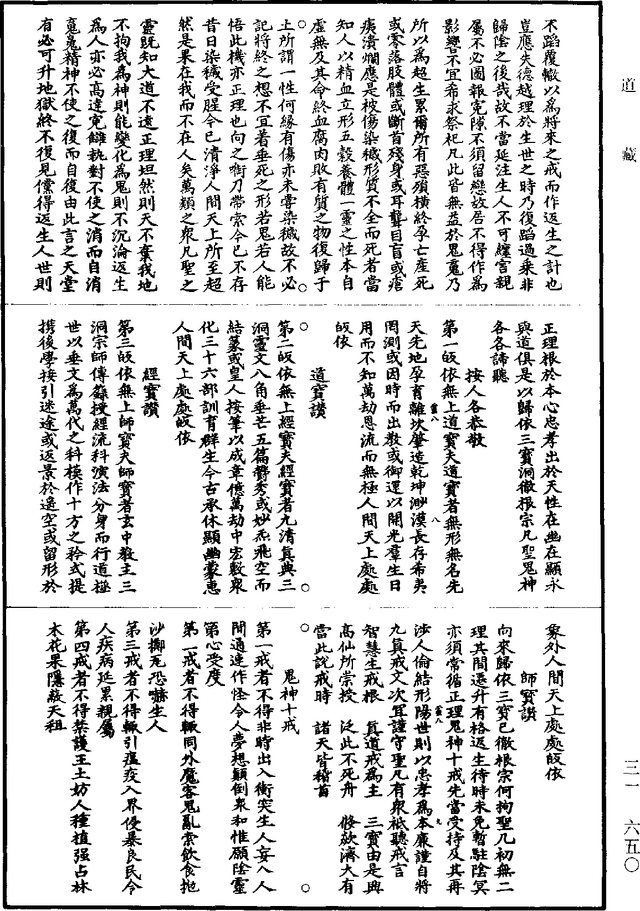 道藏
三一 六五〇
不蹈覆轍以爲將來之戒而作返生之計也
豈應失德越理於生世之時乃復蹈過乘非
歸陰之後哉故不當延注生人不可纏害親
屬不必圖報冤隙不須留戀故居不得作爲
影響不宜希求祭祀凡此皆無益於鬼魂乃
所以爲超生累爾所有惡殞橫終孕亡產死
或零落肢體或斷首殘身或耳聾目盲或瘡
痍潰爛應是被傷染穢形質不全而死者當
知人以精血立形五穀養體一靈之性本自
虛無及其命終血腐肉敗有質之物復歸于
土所謂一性何緣有傷亦未嘗染穢故不必
記將終之想不宜着垂死之形若鬼若人能
悟此機亦正理也向之銜刀帶索今已不存
昔日染穢受腥今已清淨人間天上所至超
然是果在我而不在人矣萬類之衆凡聖之
靈既知大道不遠正理坦然則天不棄我地
不拘我爲神則能變化爲鬼則不沉淪返生
爲人亦必高達冤讎執對不使之消而自消
鬼魂精神不使之復而自復由此言之天堂
有必可升地獄終不復見儻得返生人世則
正理根於本心忠孝出於天性在幽在顯永
與道俱是以歸依三寶洞徹根宗凡聖鬼神
各各諦聽
按人各恭敬
第一皈依無上道寶夫道寶者無形無名先
天先地孕育離坎肇造乾坤渺漠長存希夷
罔測或因時而出教或御運以開光羣生日
用而不知萬劫恩流而無極人間天上處處
皈依
道寶讚
第二皈依無上經寶夫經寶者九清真典三
洞靈文八角垂芒五篇欝秀或妙炁飛空而
結篆或皇人按筆以成章億萬劫中宏敷衆
化三十六部訓育群生今古承休顯幽蒙惠
人間天上處處皈依
經寶讚
第三皈依無上師寶夫師寶者玄中教主三
洞宗師傳錄授經流科演法分身而行道極
世以垂文爲萬代之科模作十方之矜式提
携後學接引迷途或返景於遥空或留形於
象外人間天上處處皈依
師寶讚
向來歸依三寶已徹根宗何拘聖凡初無二
理其間遷升有格返生待時未免暫駐陰冥
亦須常循正理鬼神十戒先當受持及其再
涉人倫結形陽世則以忠孝爲本廉謹自將
九真戒文次宜謹守聖凡有衆祇聽戒言
智慧生戒根 真道戒爲主 三寶由是興
高仙所崇授 泛此不死舟 倐欻濟大有
當此說戒時 諸天皆稽首
鬼神十戒
第一戒者不得非時出入衝突生人妄入人
間通連作怪令人夢想顛倒衆和惟願陰靈
第心受度
第二戒者不得輙同外魔客鬼亂索飲食抛
沙擲瓦恐嚇生人
第三戒者不得輙引瘟疫入界侵暴良民令
人疾病延累親屬
第四戒者不得禁護王土妨人種植强占林
木花果隱蔽天祖